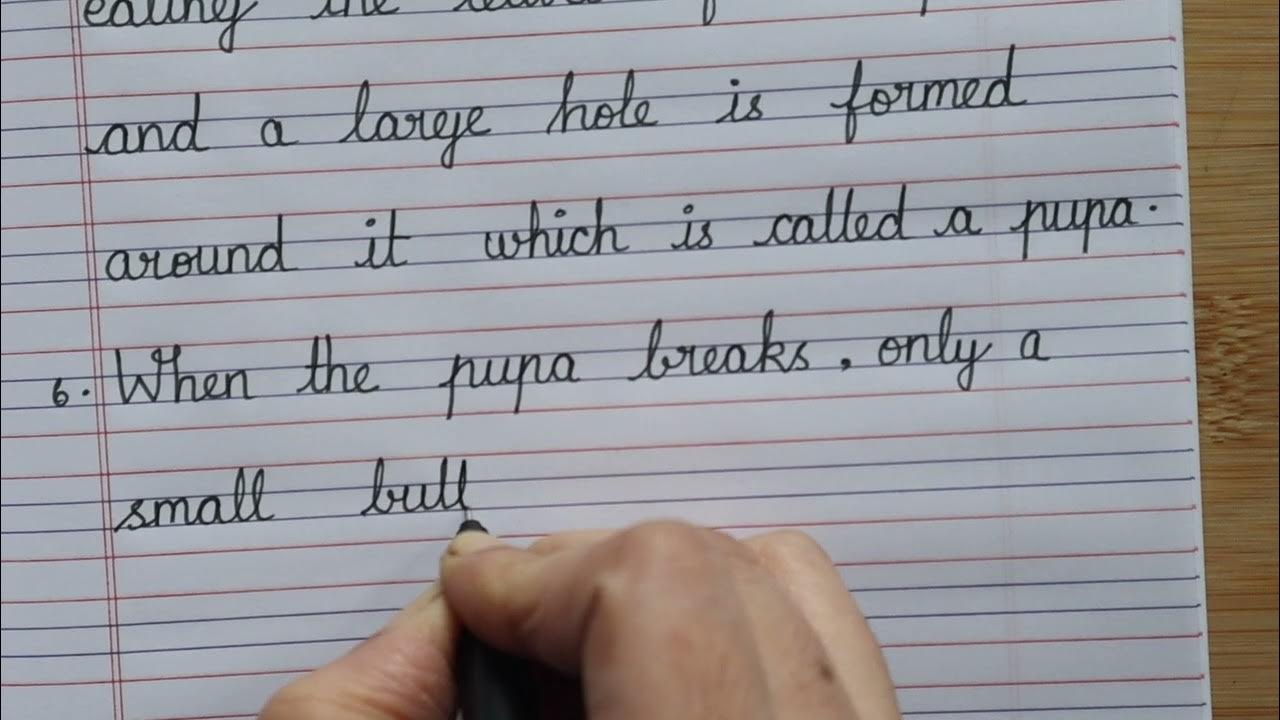 eating the
and a large hole is formed
around it which is called a pupa.
6. When the pupa breaks, only a
small butt